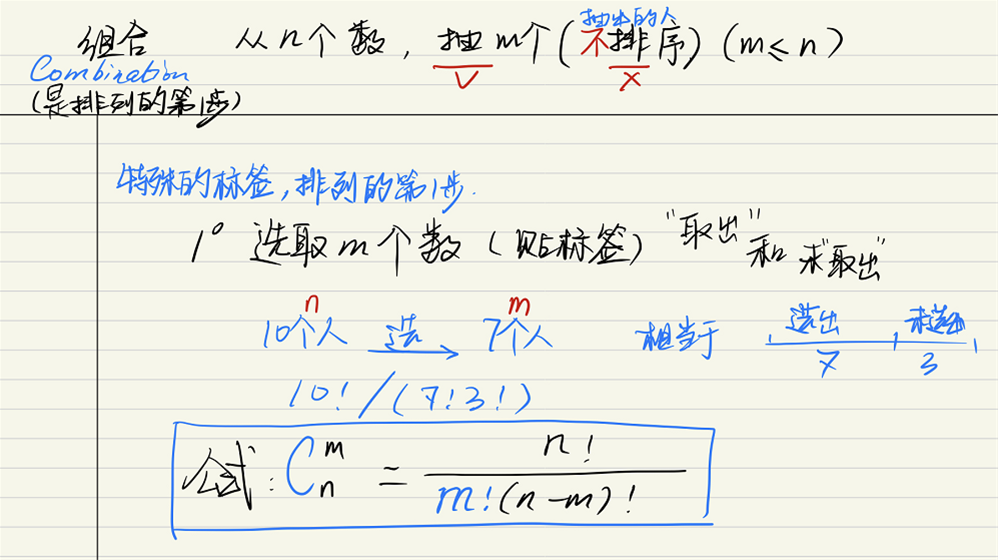 抽出的人
组合 从n个数，抽m个(不排序)(m≤n)
Combination ✓ ×
(是排列的第1步)
特殊的标签，排列的第1步.
1° 选取m个数(贴标签)"取出"和未"取出"
n m
10个人 选→ 7个人 相当于 选出 未选出
7 3
10!/(7!3!)
公式: C_n^m = n!/(m!(n-m)!)